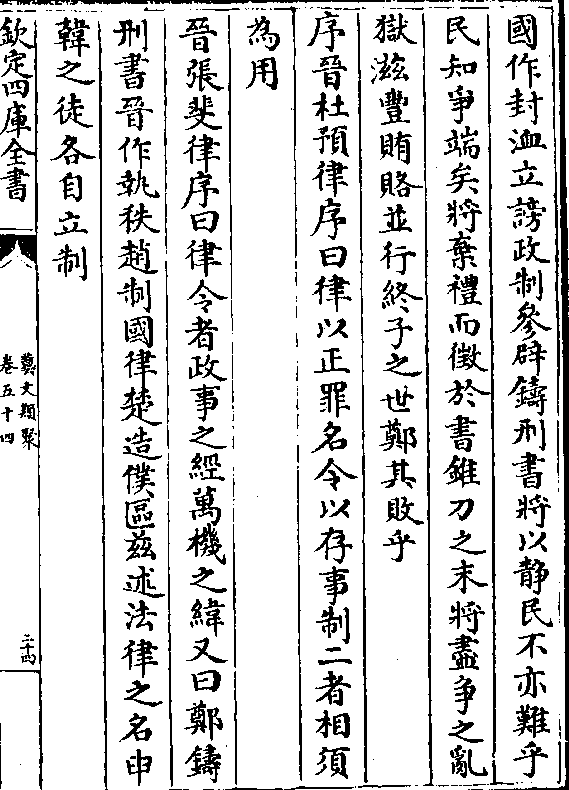 國作封洫立謗政制參辟鑄刑書將以静民不亦難乎
民知爭端矣將棄禮而徵於書錐刀之末將盡爭之亂
獄滋豐賄賂並行終子之世鄭其敗乎
序晉杜預律序曰律以正罪名令以存事制二者相須
為用
晉張斐律序曰律令者政事之經萬機之緯又曰鄭鑄
刑書晉作執秩趙制國律楚造僕區兹述法律之名申
韓之徒各自立制
欽定四庫全書
藝文類聚
卷五十四
二十四